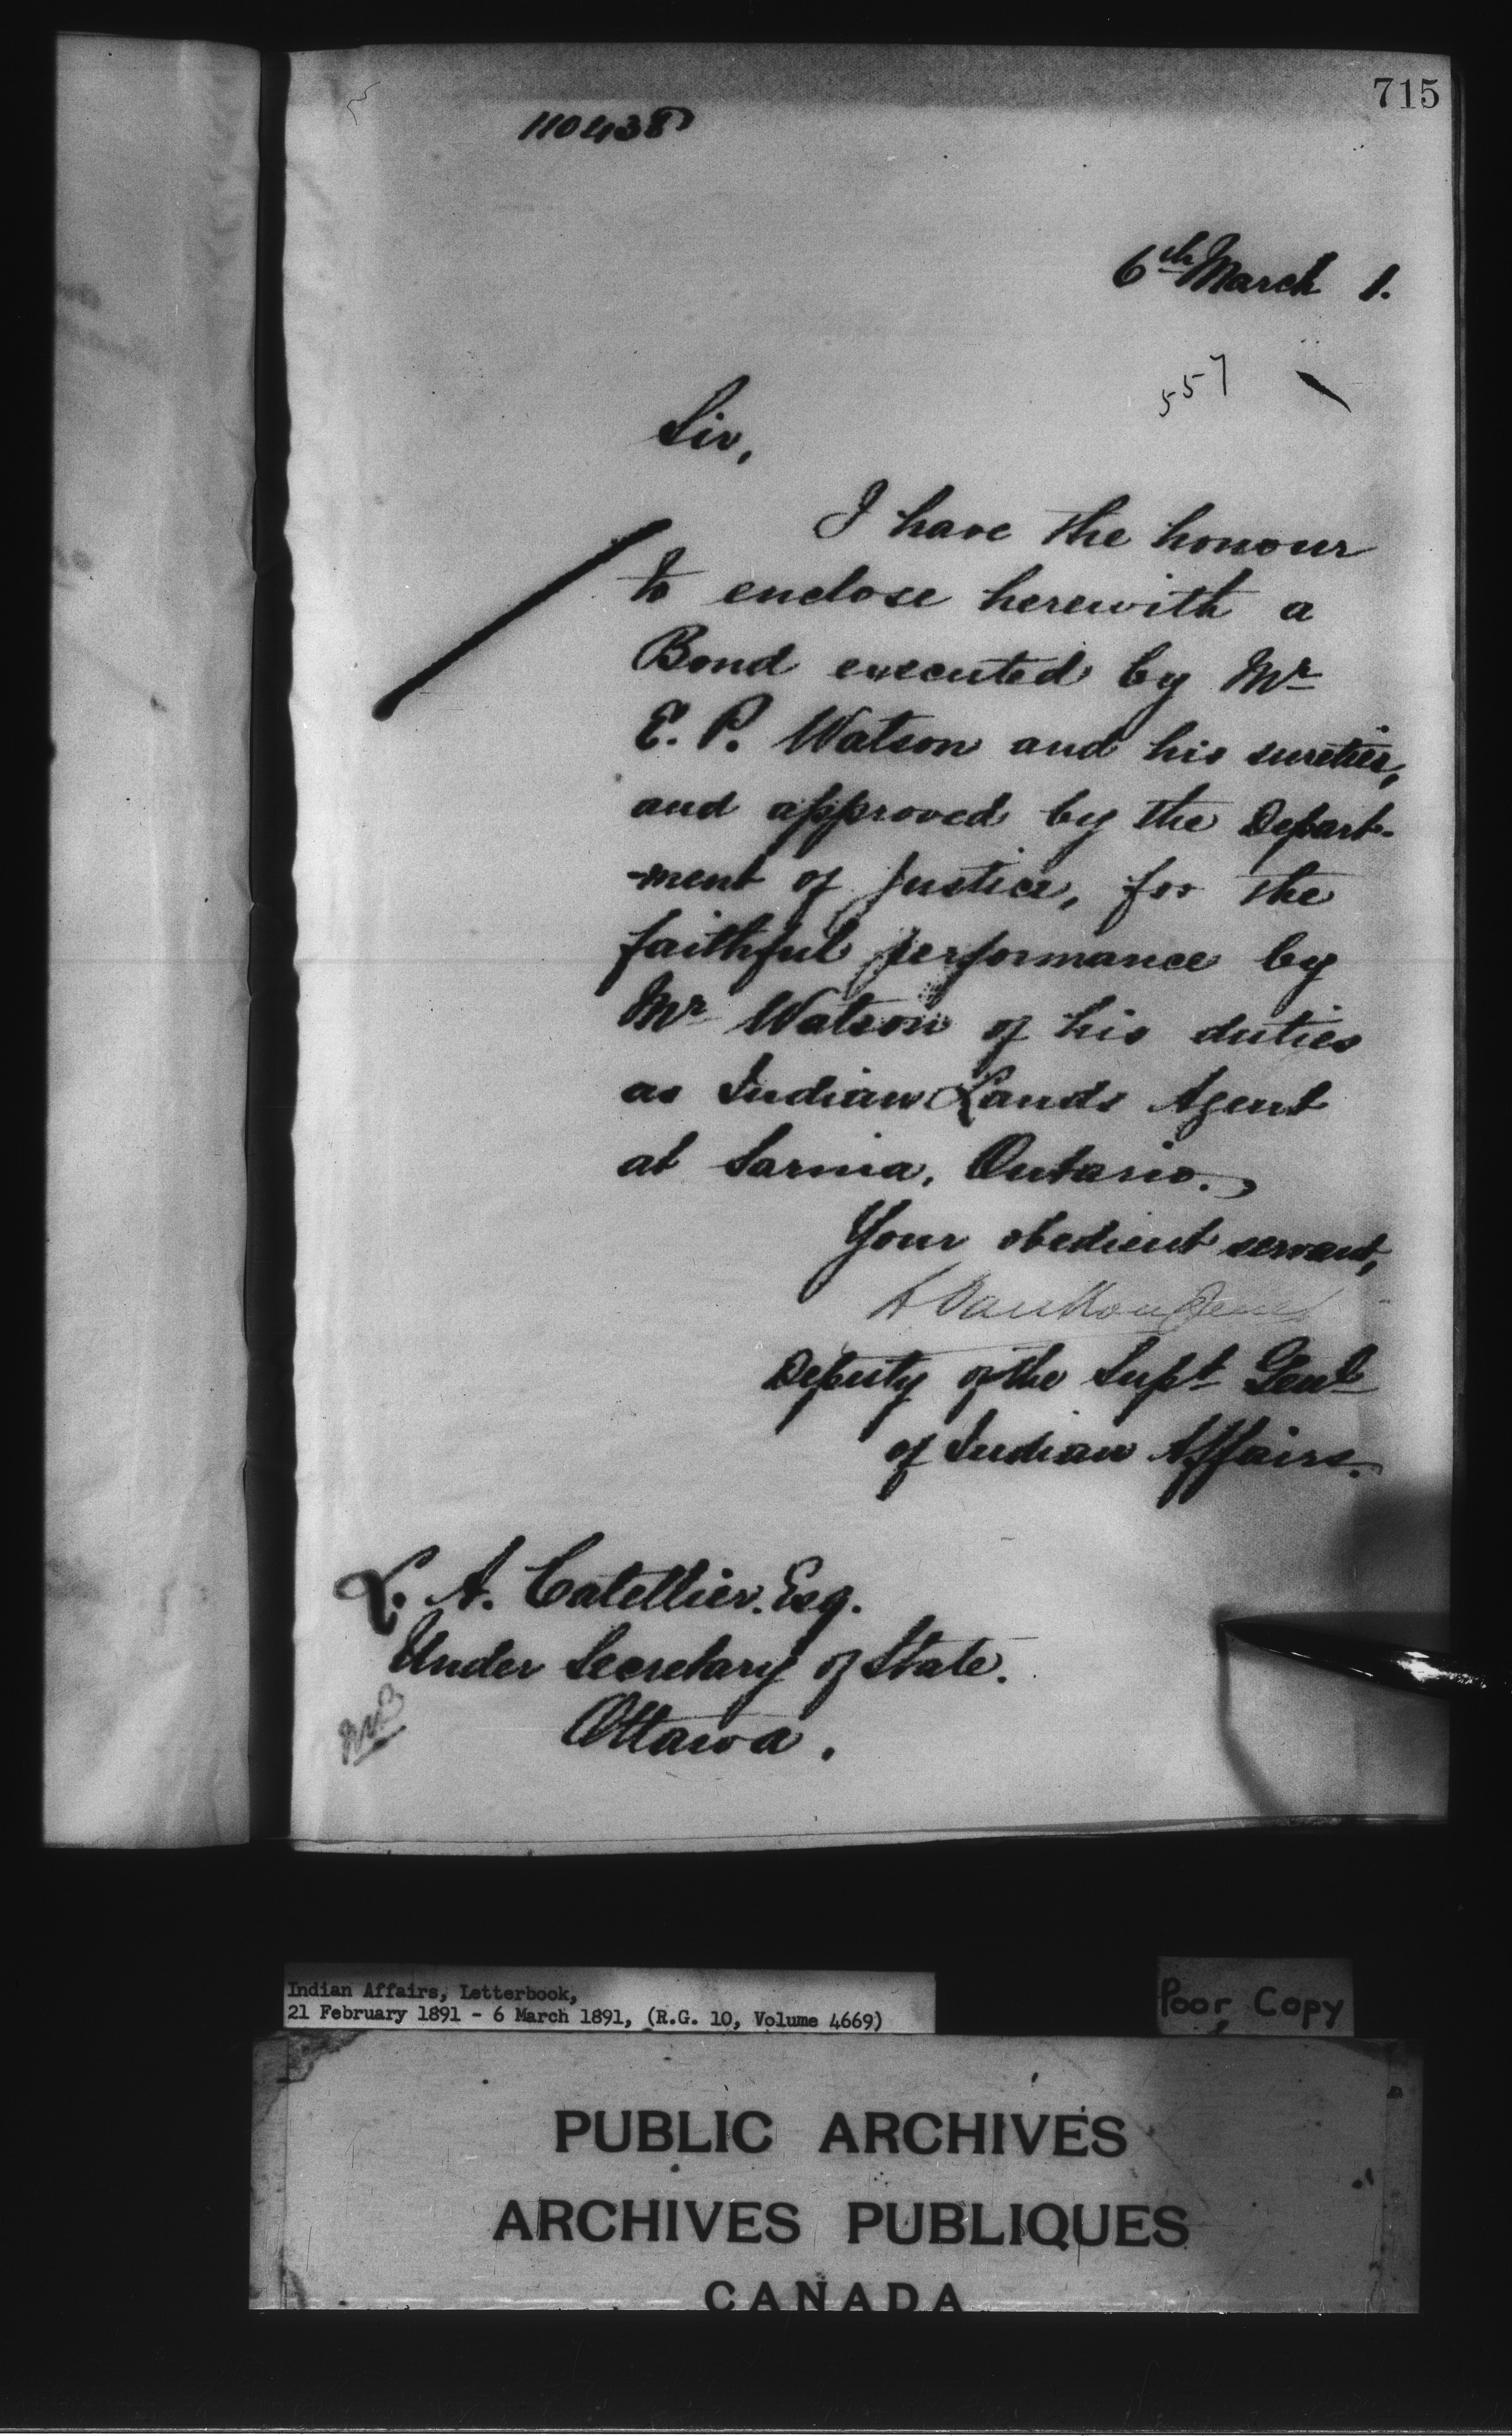 715
110438
6th March 1.
557
Sir,
I have the honour
to enclose herewith a
Bond executed by Mr
E. P. Watson and his sureties,
and approved by the Depart-
-ment of Justice, for the
faithful performance by
Mr Watson of his duties
as Indian Lands Agent
at Sarnia, Ontario.
Your obedient servant,
L VanKoughnet
Deputy of the Supt Genl
of Indian Affairs.
L. A. Catellier. Esq.
Under Secretary of State.
Ottawa.
Indian Affairs, Letterbook,
21 February 1891 - 6 March 1891, (R.G. 10, Volume 4669)
Poor Copy
PUBLIC ARCHIVES
ARCHIVES PUBLIQUES
CANADA